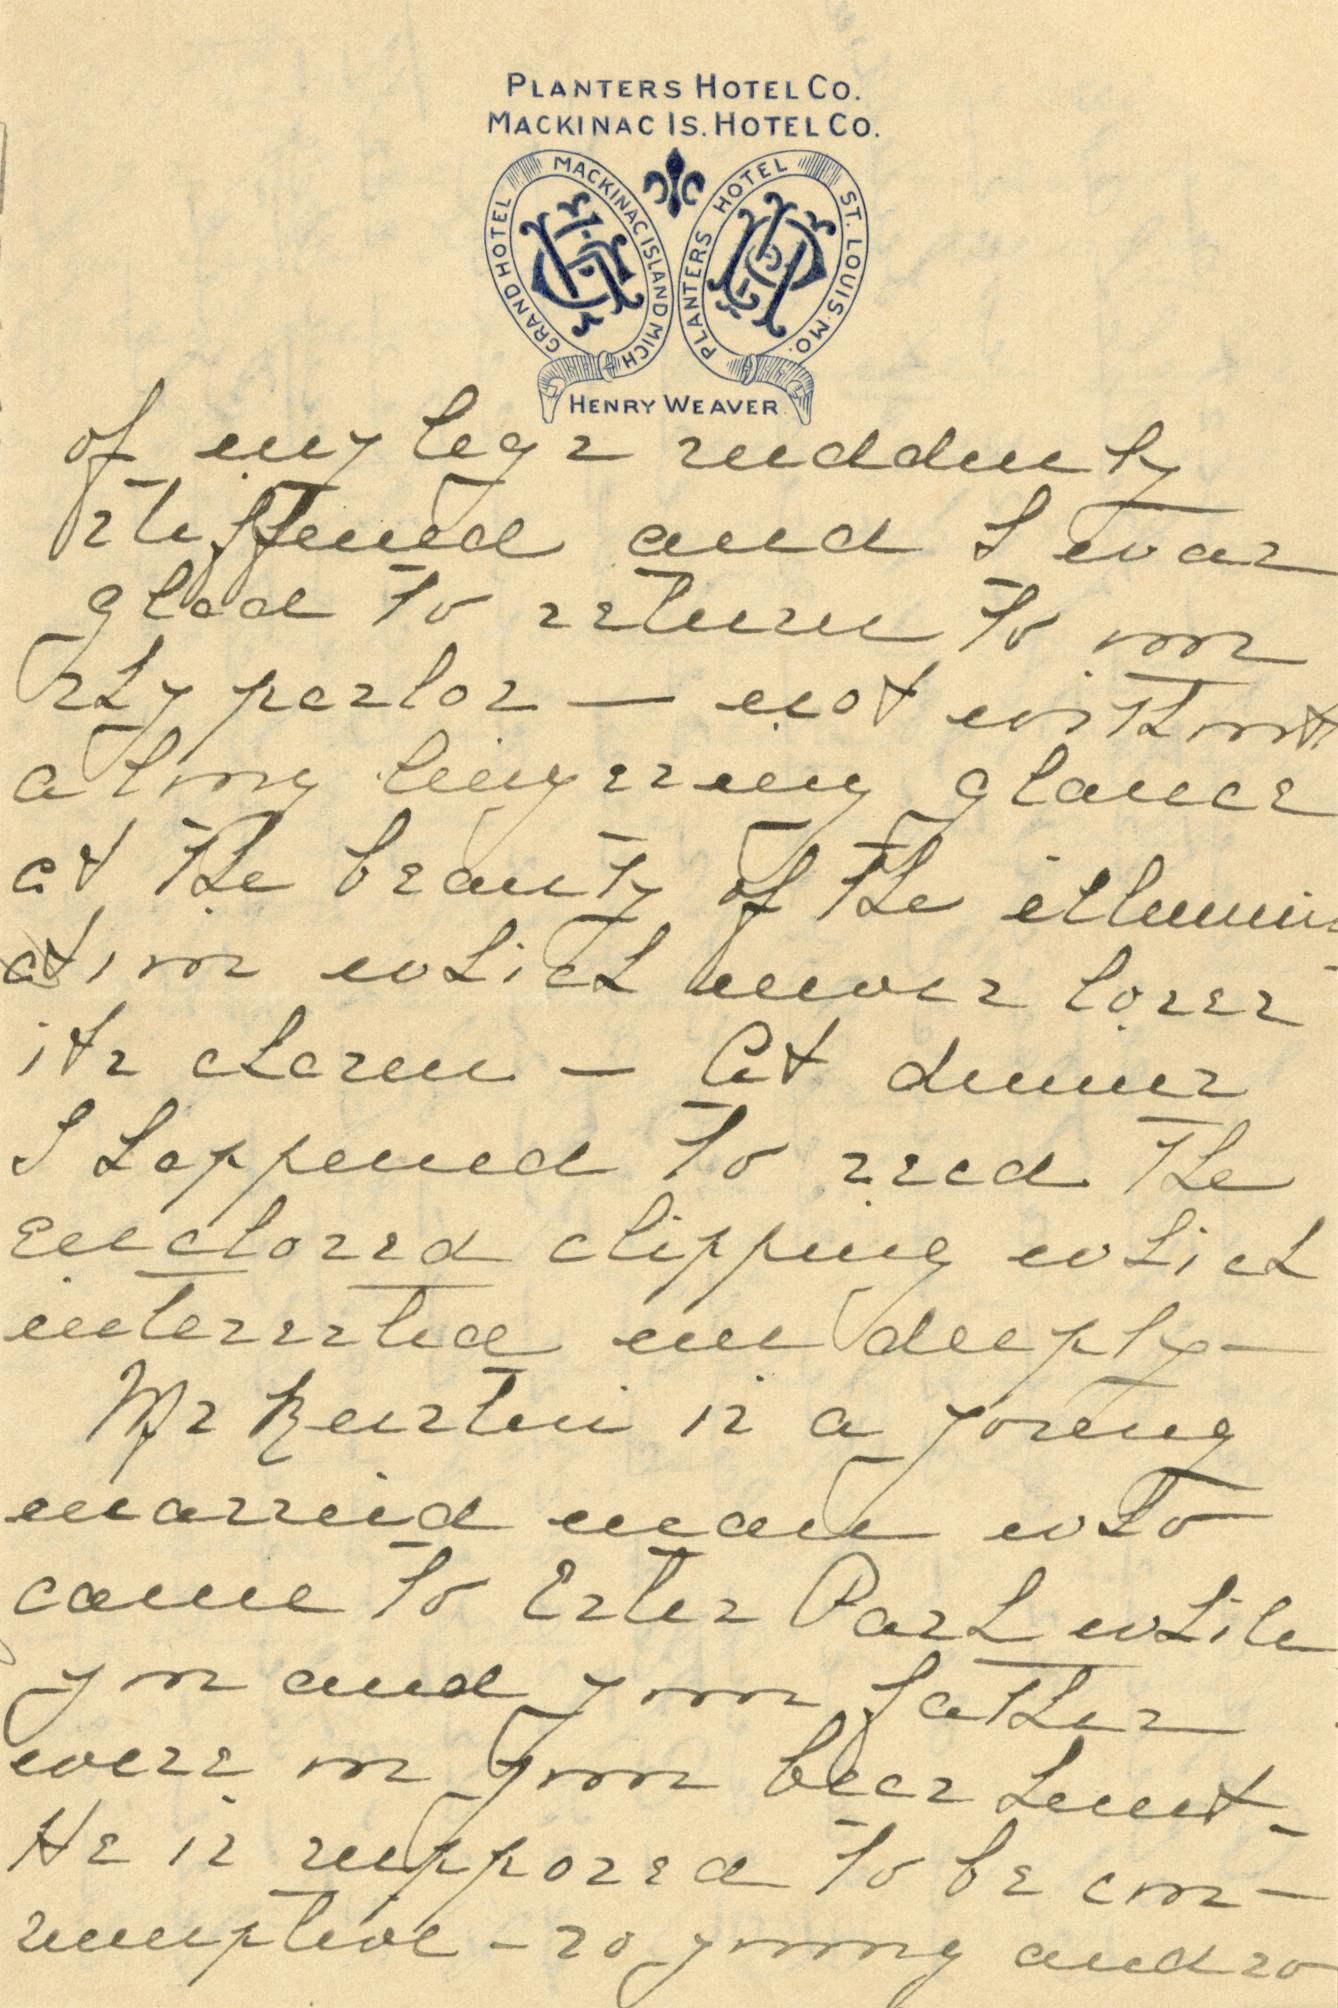 PLANTERS HOTEL CO.
MACKINAC IS. HOTEL CO.
GRAND HOTEL MACKINAC ISLAND MICH
PLANTERS HOTEL ST. LOUIS. MO.
HENRY WEAVER
of my legs suddenly
stiffened and I was
glad to return to our
sty parlor — not without
a long lingering glance
at the beauty of the illumin
ation which never loses
its charm — At dinner
I happened to read the
enclosed clipping which
interested me deeply —
Mr is a young
married man who
came to Estes Park while
you and your father
were on your bear hunt –
He is supposed to be con–
sumptive – so young and so